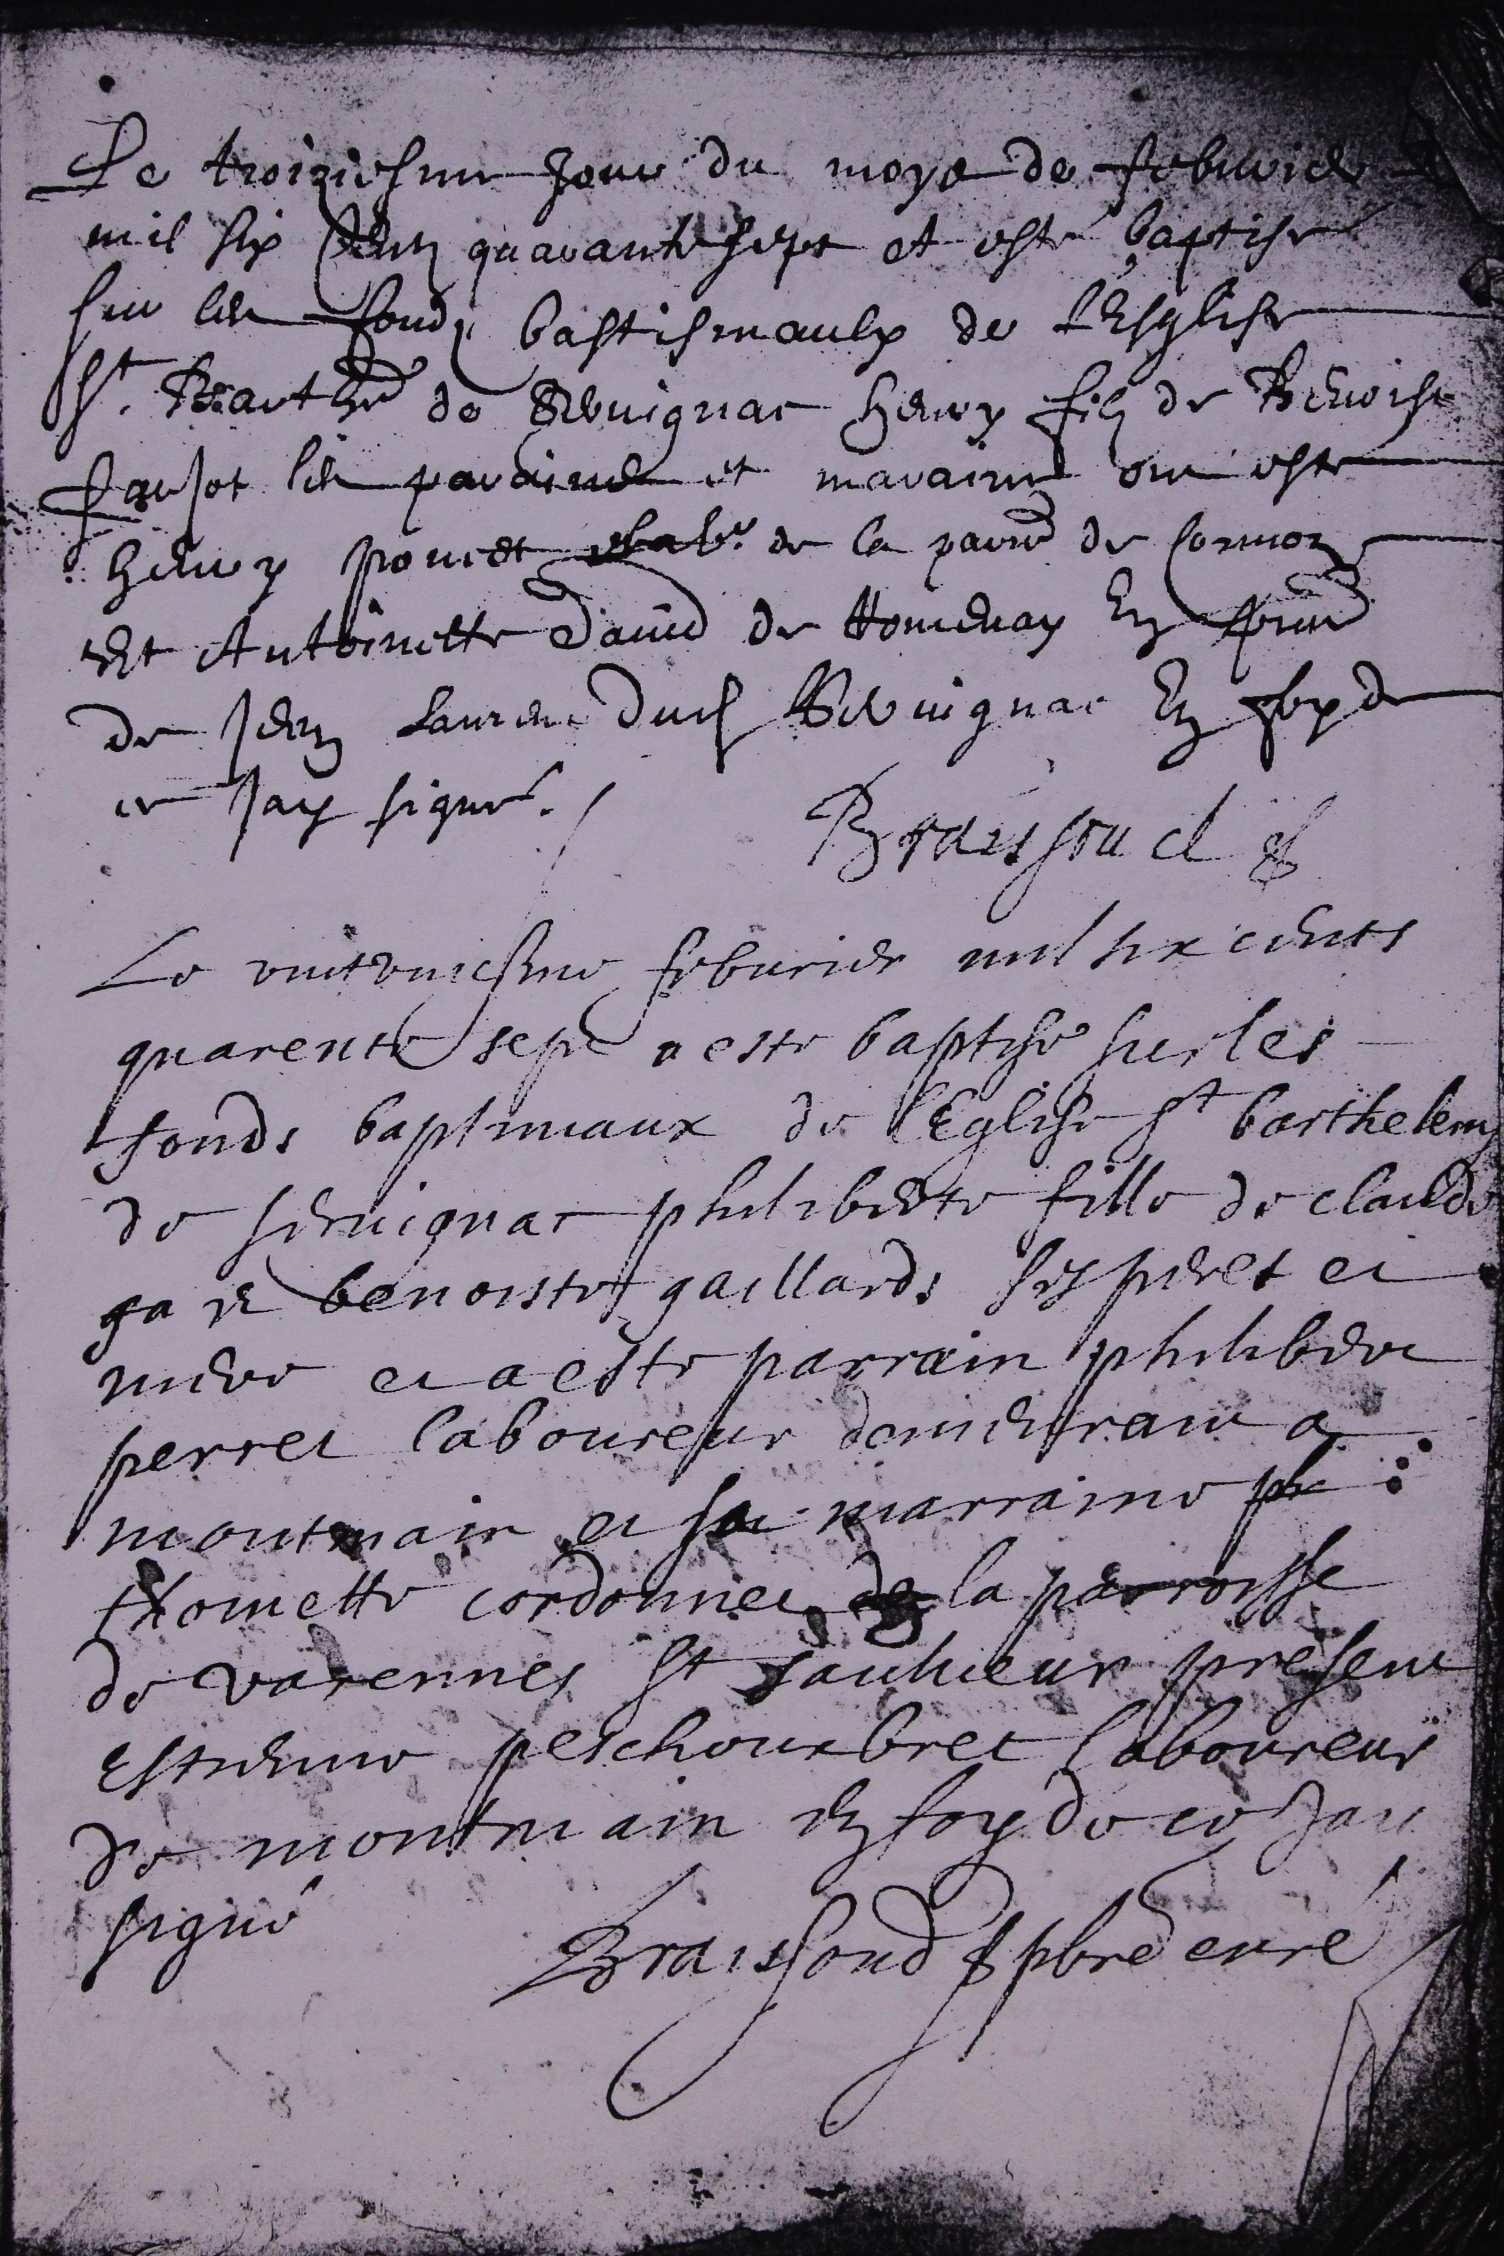 Le troiziesme Jour du moys de febvrier
mil six Centz quarante sept et esté baptisé
sur les fondz baptismaulx de l'Esglise
St. Barthe de Servignac henry filz de Benoist
les paraine et maraine on esté
henry ponset de la parre de Cormoz
Et Antoinette David de Romenay En pnce
de Jean Laurent dud Servignac En foy de
ce Jay signé. /
Braissoud
Le vintroiesme febvrier mil six cents
quarente sept a este baptise sur les
fonds baptimaux de l'Eglise St barthelemy
de servignac philiberte fille de claude
benoiste gaillards ses peres et
mere et a este parrain philibert
perret laboureur demeurant a
montmain et sa marraine
thomette cordonnet de la parroisse
de varennes St sauveur present
Estienne peschouxbret laboureur
de montmain En foy de ce Jay
signé
Braissoud pbre curé